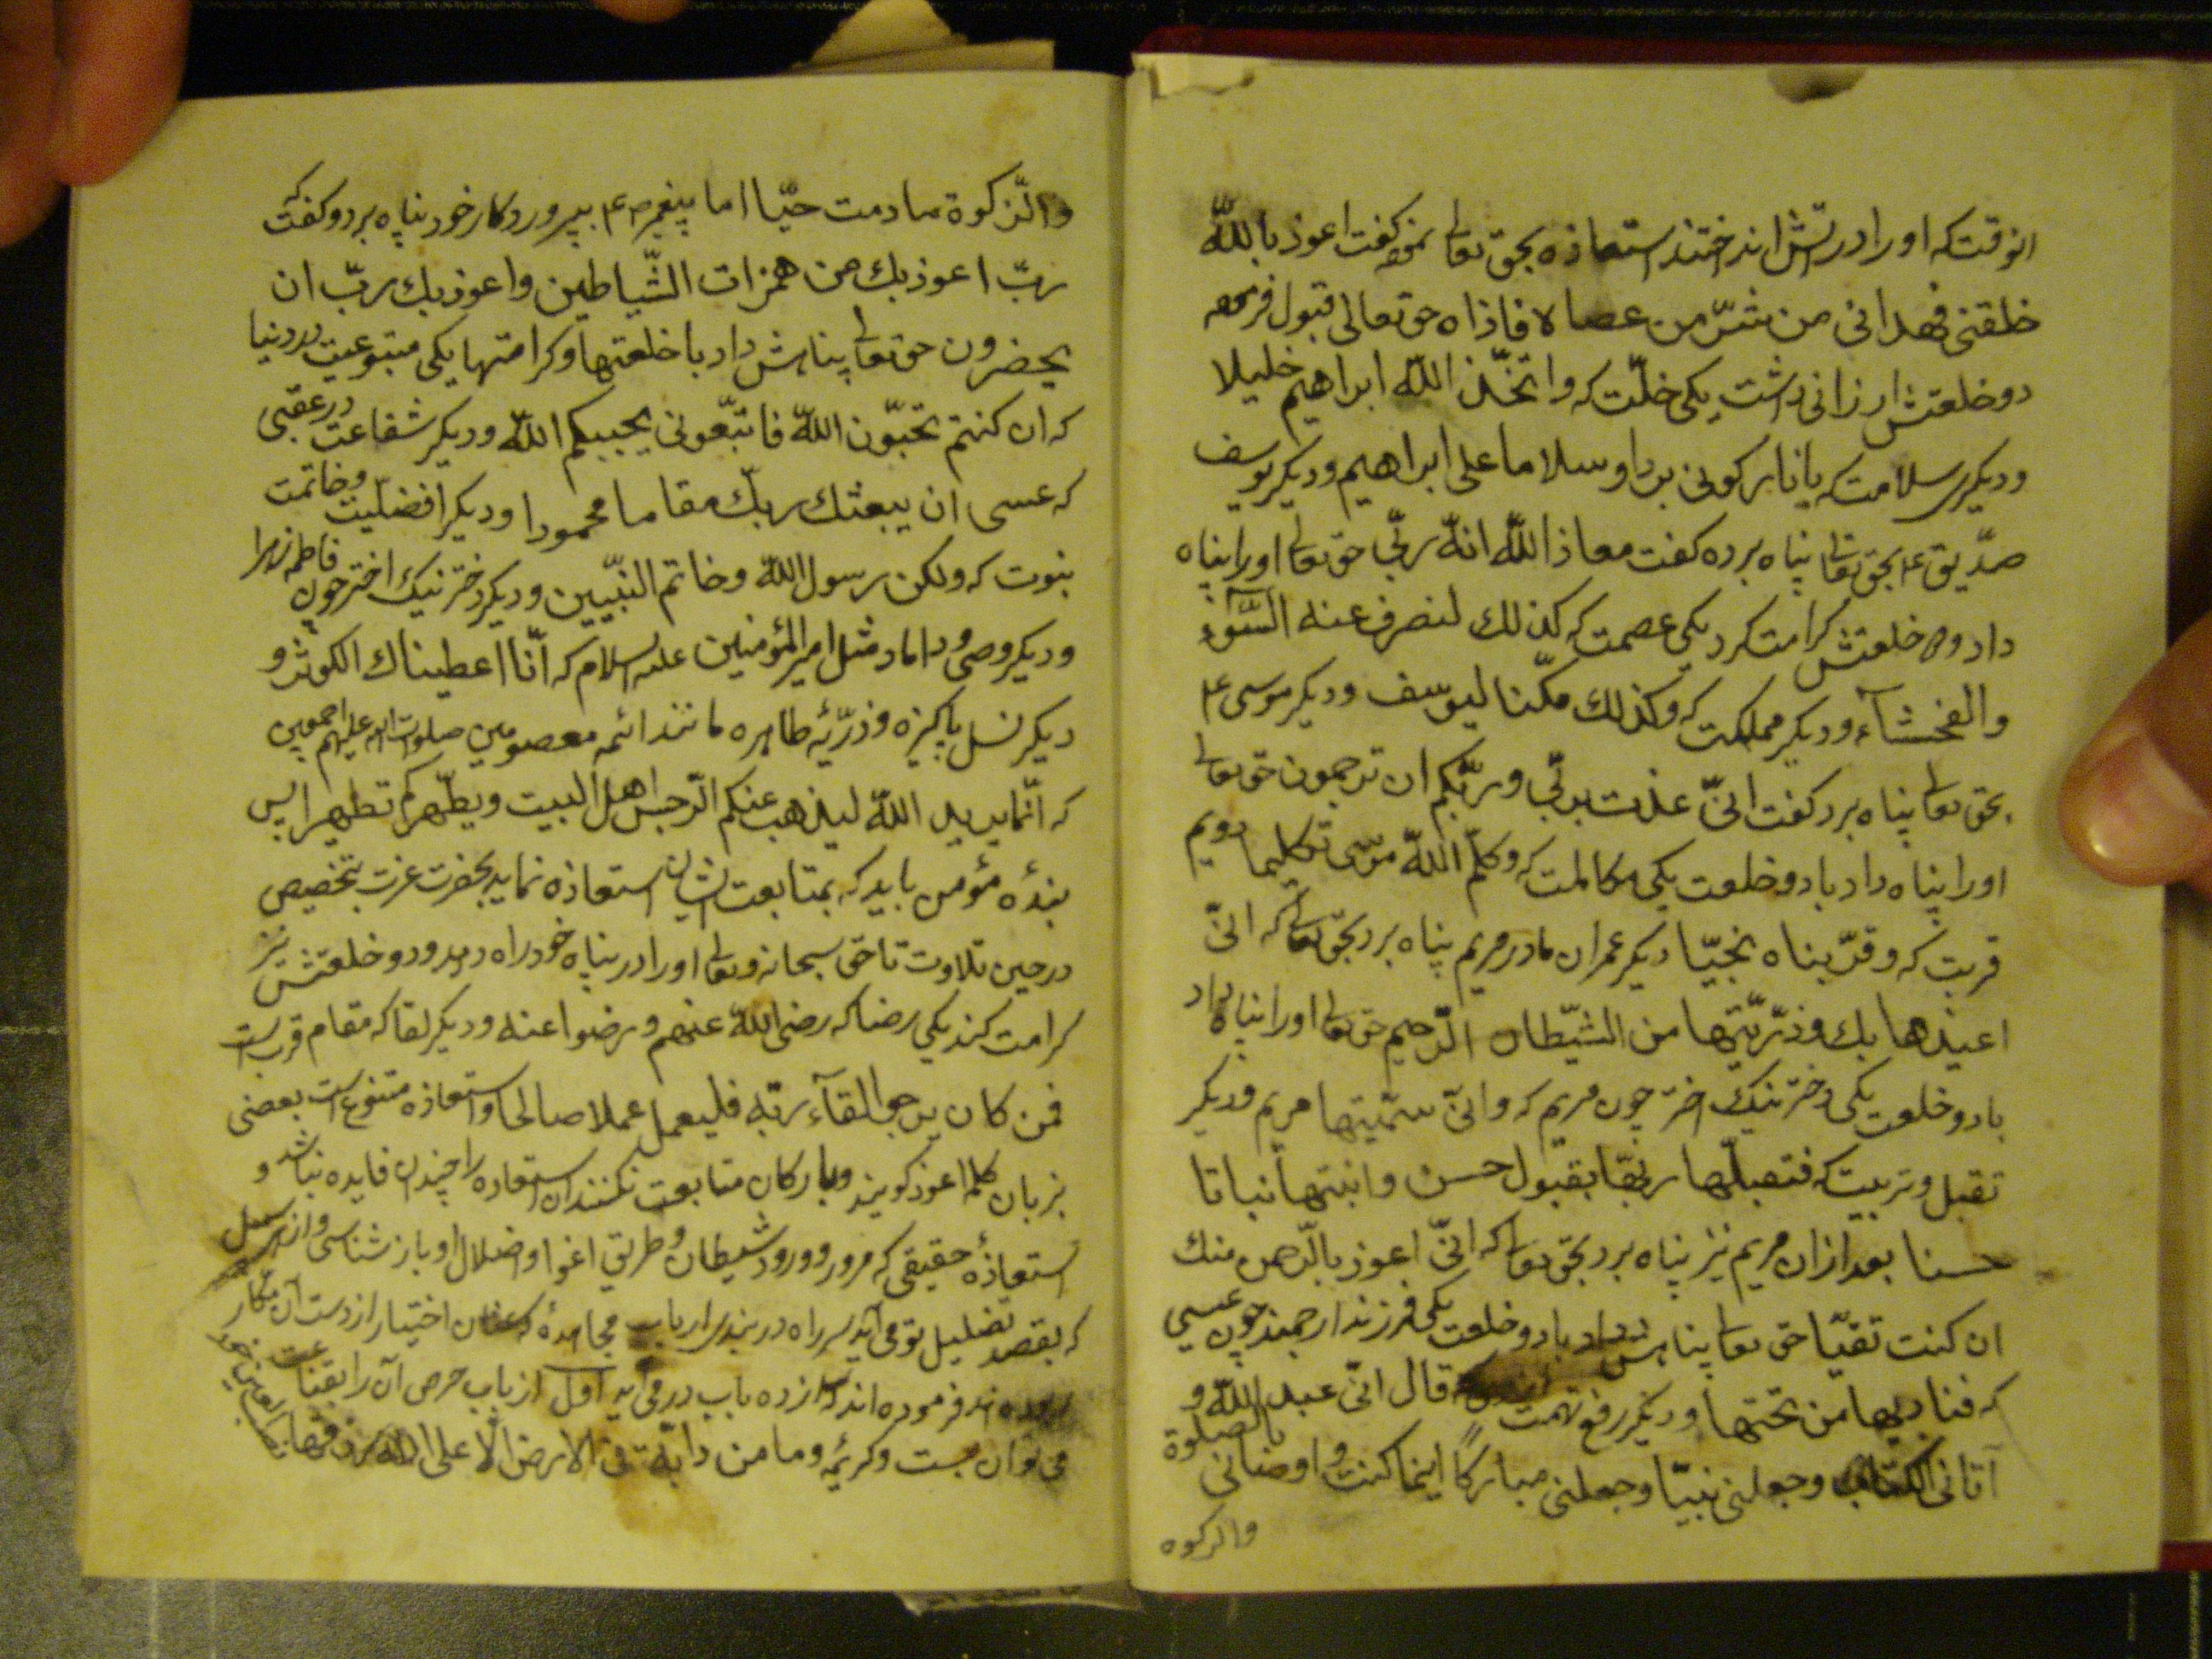 انوقت که او را در اتش انداختند استعاذه بحق تعالی نموده کفت اعوذ بالله
خلقنی فهدانی من شرّ من عصاه فاذاه حق تعالی قبول فرموده
دو خلعتش ارزانی داشت یکی خلّت که واتّخذ الله ابراهیم خلیلا
و دیکر سلامت که یا نار کونی بردا وسلاما علی ابراهیم و دیکر یوسف
صدّیق ع بحق تعالی پناه برده کفت معاذ الله انّه ربّی حق تعالی او را پناه
داد و دو خلعتش کرامت کرد یکی عصمت که کذلك لنصرف عنه السّوء
والفحشآء و دیکر مملکت که وکذلك مکّنا لیوسف و دیکر موسی ع
بحق تعالی پناه برد کفت انیّ عذت بربّی وربّکم ان ترجمون حق تعالی
او را پناه داد با دو خلعت یکی مکالمت که وکلّم الله موسی تکلیما دویم
قربت که وقرّبناه نجیّا دیکر عمران مادر مریم پناه برد بحق تعالی که انیّ
اعیذها بك وذرّیّتها من الشّیطان الرّجیم حق تعالی او را پناه داد
با دو خلعت یکی دختر نیك اختر چون مریم که وانیّ سمّیتها مریم و دیکر
تقبل و تربیت که فتقبلّها ربّها بقبول حسن وانبتها نباتا
حسنا بعد از ان مریم نیز پناه برد بحق تعالی که انیّ اعوذ بالرّحمن منك
ان کنت تقیّا حق تعالی پناهش داد با دو خلعت یکی فرزند ارجمند چون عیسی
که فنادیها من تحتها و دیکر رفع تهمت قال انیّ عبد الله و
آتانی الکتاب وجعلنی نبیّا وجعلنی مبارکاً اینما کنت و اوصانی بالصلوة
والزکوه
والزّکوة مادمت حیّا اما پیغمبر ص ع بپروردکار خود پناه برد و کفت که
ربّ اعوذ بك من همزات الشّیاطین واعوذ بك ربّ ان
یحضرون حق تعالی پناهش داد با خلعتها و کرامتها یکی متبوعیت در دنیا
که ان کنتم تحبّون الله فاتبّعونی یحببکم الله و دیکر شفاعت در عقبی
که عسی ان یبعثك ربّك مقاما محمودا و دیکر افضلیّت و خاتمت
بنوت که ولکن رسول الله وخاتم النبّیین و دیکر دختر نیك اختر چون فاطمه زهرا
و دیکر وصی و داماد مثل امیر المؤمنین علیه السلام که انّا اعطیناك الکوثر و
دیکر نسل پاکیزه و ذرّیّه طاهره مانند ائمه معصومین صلوات الله علیهم اجمعین
که انّما یرید الله لیذهب عنکم الرّجس اهل البیت ویطّهرکم تطهیرا پس
بندهٔ مؤمن باید که بمتابعت ایشان استعاذه نماید بحضرت عزت بتخصیص
در حین تلاوت تا حق سبحانه و تعالی او را در پناه خود راه دهد و دو خلعتش نیز
کرامت کند یکی رضا که رضی الله عنهم ورضوا عنه و دیکر لقا که مقام قرب است
فمن کان یرجو القآء ربّه فلیعمل عملا صالحا و استعاذه متنوع است بعضی
بزبان کلمه اعوذ کویند و بارکان متابعت نکنند ان استعاذه را چندان فایده نباشد و
استعاذهٔ حقیقی که مرور و ورود شیطان و طریق اغوا و اضلال او باز شناسی و از سبیل
که بقصد تضلیل تو می آید سر راه در بندی ارباب مجاهدهٔ که عنان اختیار از دست آن مکّار
ربوده اند فرموده اند که از ده باب در می آید اول از باب حرص آن را بقناعت
می توان بست وکریمه وما من دابّة فی الارض الّا علی الله رزقها